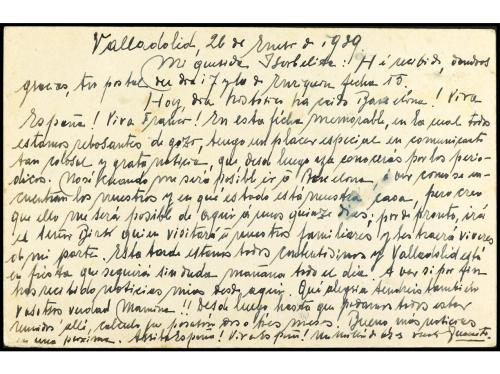 Valladolid, 26 de Enero de 1939.
Mi querida Isabelita: Hé recibido, dandoos
gracias, tu postal del día 17 y la de Enrique fecha 15.
Hoy, día histórico ha caido Barcelona! Viva
España! Viva Franco! En esta fecha memorable, en la cual todos
estamos rebosantes de gozo, tengo un placer especial en comunicarte
tan colosal y grata noticia, que desde luego ya conoceras por los perio-
dicos. No sé cuando me será posible ir á Barcelona á ver como se en-
cuentran los nuestros y en que estado está nuestra casa, pero creo
que ello me será posible de aquí á unos quince días; por de pronto, irá
el Señor quien visitará á nuestros familiares y les traerá viveres
de mi parte. Esta tarde estamos todos contentisimos y Valladolid está
en fiesta que seguirá sin duda mañana todo el día. A ver si por fin
has recibido noticias mias desde aquí. Que alegria tendreis tambien
vosotros verdad Mamina!! Desde luego hasta que podamos todos estar
reunidos allí, calculo, pasarán dos o tres meses. Bueno más noticias
en una proxima. Arriba España! Viva España! Juanito